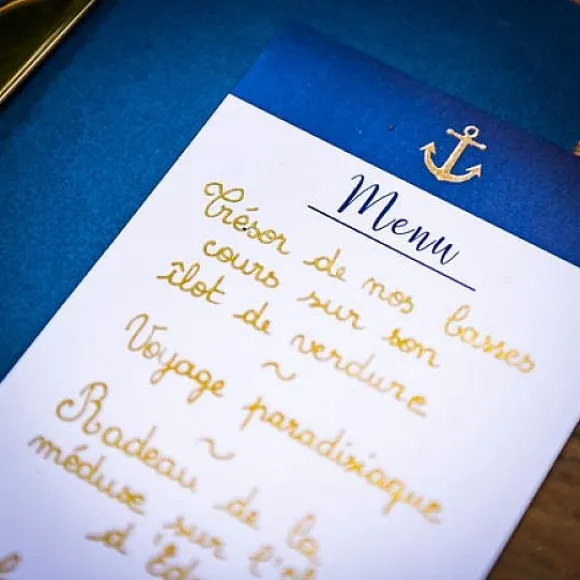 Menu
Trésor de nos basses
cours sur son
îlot de verdure
~
Voyage paradisiaque
~
Radeau de la
méduse sur l'
d'